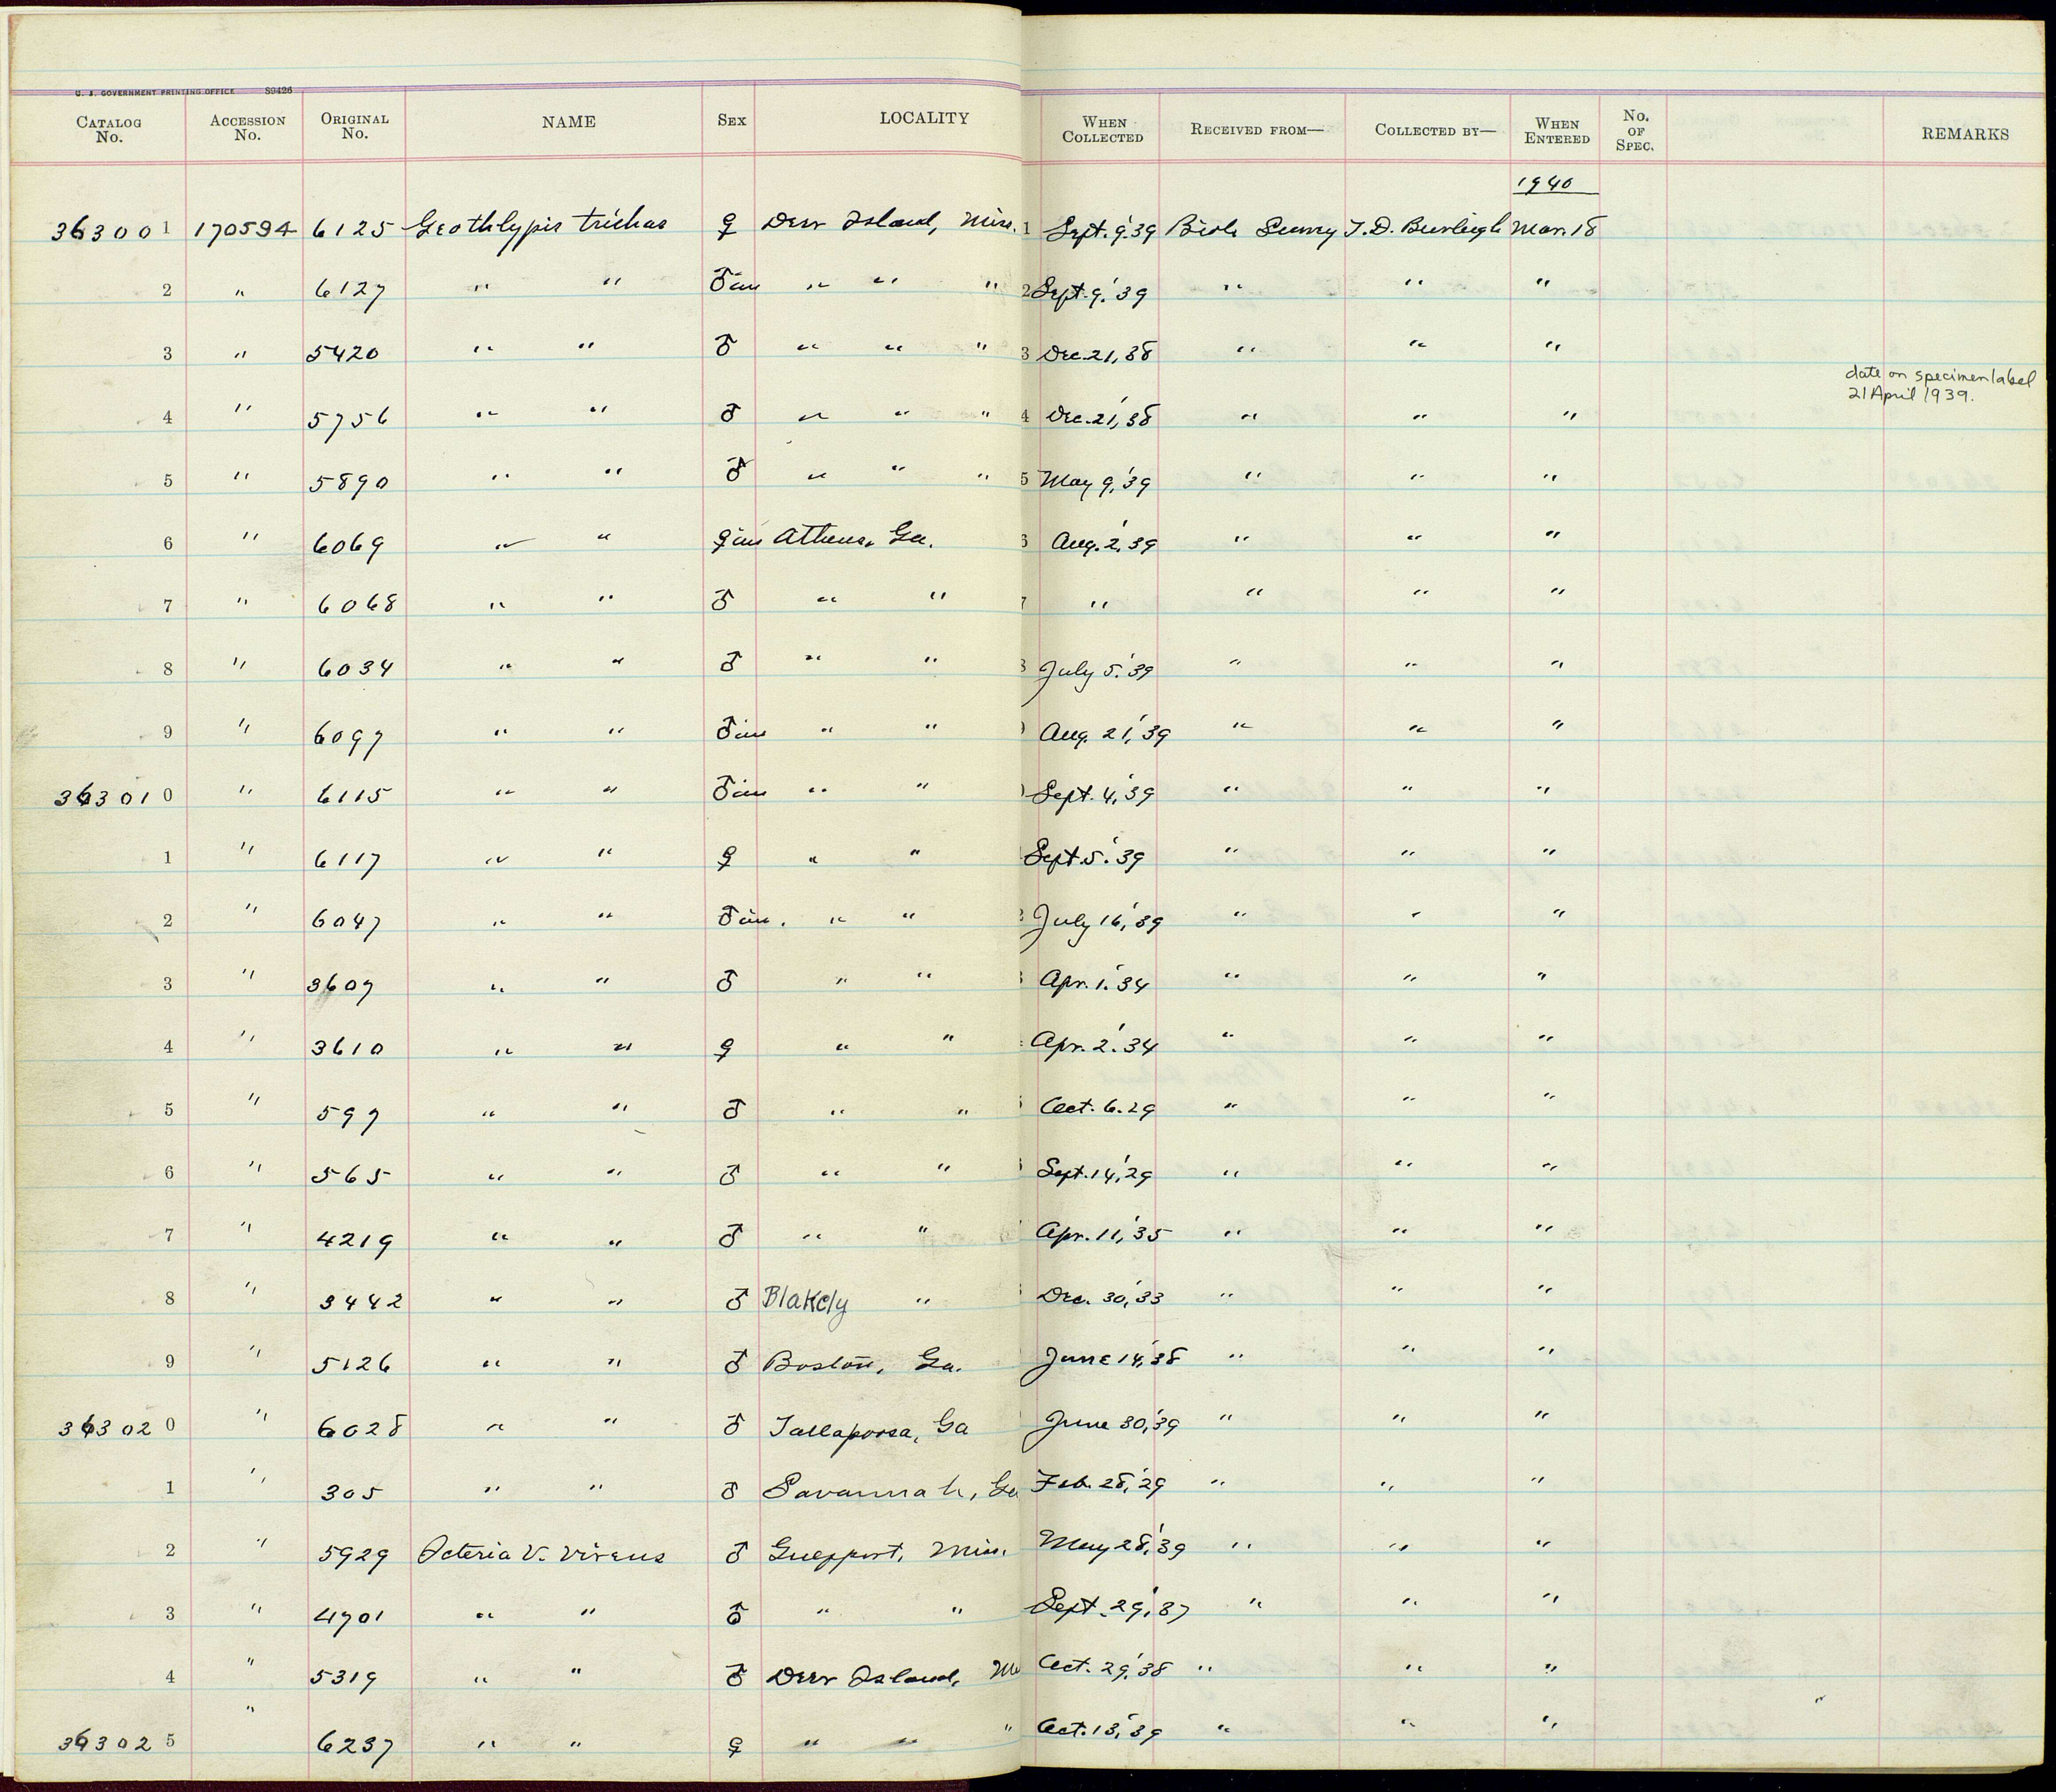 U. S. GOVERNMENT PRINTING OFFICE 89426
CATALOG No. ACCESSION No. ORIGINAL No. NAME SEX LOCALITY WHEN COLLECTED RECEIVED FROM— COLLECTED BY— WHEN ENTERED No. OF SPEC. REMARKS
1940
363001 170594 6125 Geothlypis trichas ♀ Deer Island, Miss. 1 Sept. 9, '39 Biol. Survey T.D. Burleigh Mar. 18
2 " 6127 " " ♂ im " " " 2 Sept. 9, '39 " " "
3 " 5420 " " ♂ " " " 3 Dec. 21, 38 " " "
date on specimen label
21 April 1939.
4 " 5756 " " ♂ " " " 4 Dec. 21, '38 " " "
5 " 5890 " " ♂ " " " 5 May 9, '39 " " "
6 " 6069 " " ♀ im Athens, Ga. 6 Aug. 2, '39 " " "
7 " 6068 " " ♂ " " 7 " " " "
8 " 6034 " " ♂ " " 8 July 5, '39 " " "
9 " 6097 " " ♂ im " " Aug. 21, '39 " " "
363010 " 6115 " " ♂ im " " Sept. 4, '39 " " "
1 " 6117 " " ♀ " " Sept. 5, '39 " " "
2 " 6047 " " ♂ im. " " 2 July 16, '39 " " "
3 " 3607 " " ♂ " " 3 Apr. 1, '34 " " "
4 " 3610 " " ♀ " " Apr. 2, '34 " " "
5 " 597 " " ♂ " " Oct. 6. 29 " " "
6 " 565 " " ♂ " " Sept. 14, '29 " " "
7 " 4219 " " ♂ " " Apr. 11, '35 " " "
8 " 3442 " " ♂ Blakely " Dec. 30, '33 " " "
9 " 5126 " " ♂ Boston, Ga. June 14, '38 " " "
363020 " 6028 " " ♂ Tallapoosa, Ga June 30, '39 " " "
1 " 305 " " ♂ Savannah, Ga Feb. 28, '29 " " "
2 " 5929 Icteria v. virens ♂ Gulfport, Miss. May 28, '39 " " "
3 " 4701 " " ♂ " " Sept. 29, '37 " " "
4 " 5319 " " ♂ Deer Island, M Oct. 29, '38 " " "
363025 " 6237 " " ♀ " " " Oct. 13, '39 " " "